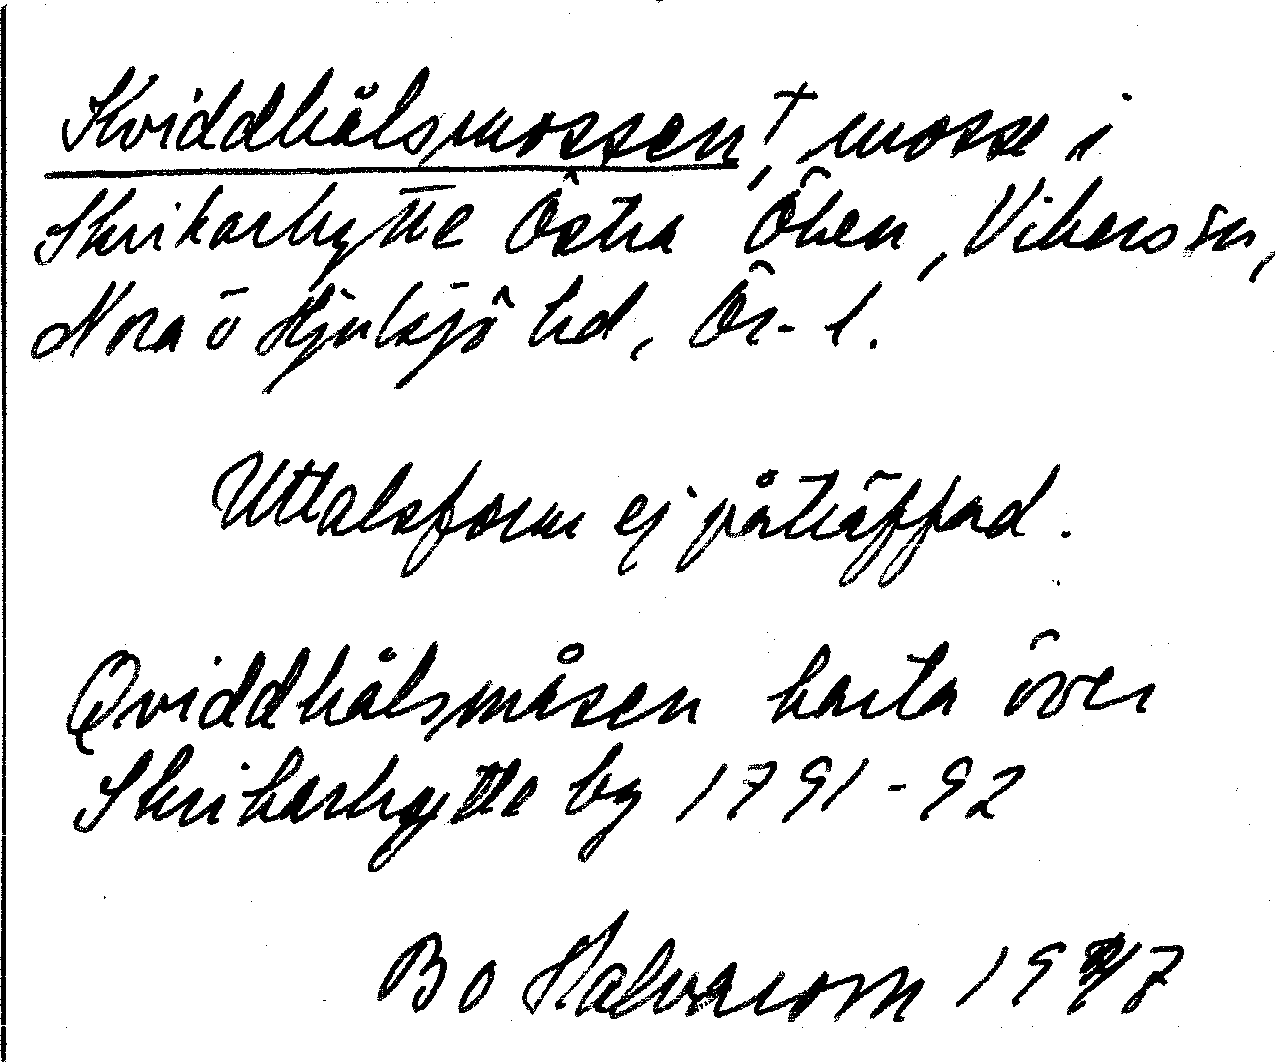 Kviddhålsmossen†, mosse i
Skrikarhytte Östra Öken, Vikers sn,
Nora o Hjulsjö hd, Ör. l.
Uttalsform ej påträffad.
Qviddhålsmåsen karta över
Skrikarhytte by 1791-92
Bo Halvarson 1947